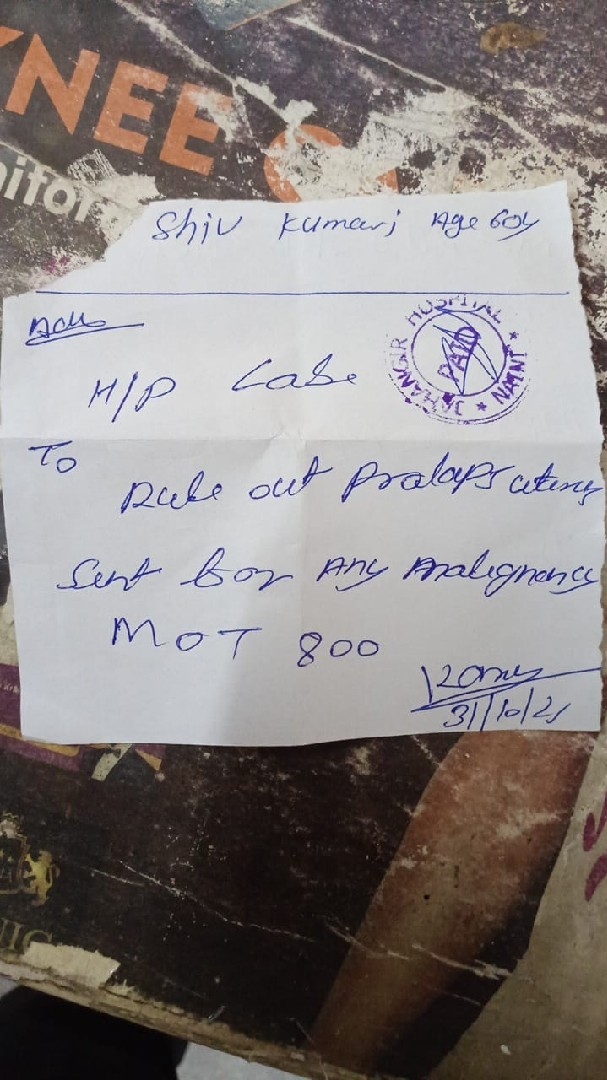 KNEE
nitor
Shiv Kumari Age 60y
Adv
JAHANGIR HOSPITAL
NMNT
PAID
H/P Labe
To
Rule out Prolaps uterus
Sent for Any Malignancy
MOT 800
31/10/21